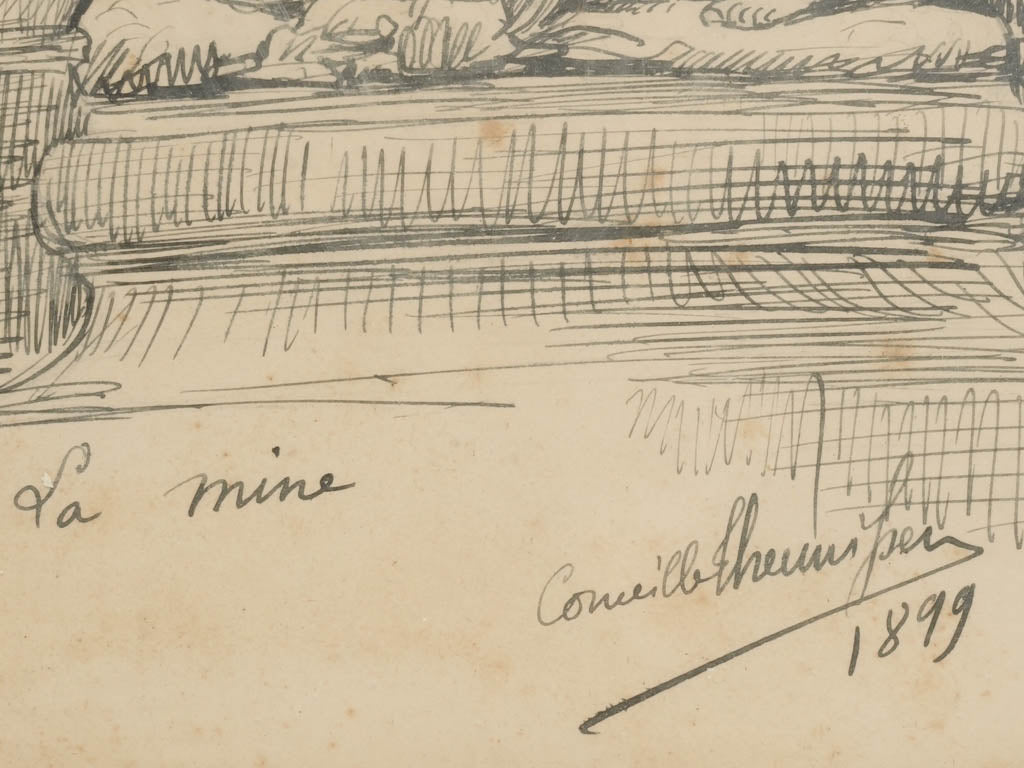 La mine
Corneille Theunissen
1899